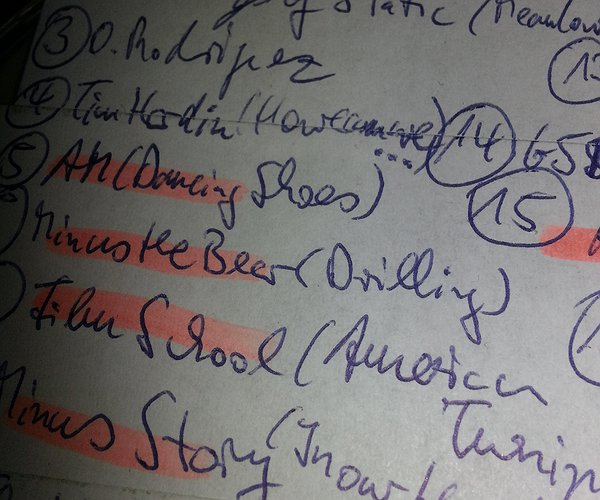 Static (
③ O. Rodriguez 13
④ Tim Hardin (How can we ...) 14 G5
5 AM (Dancing Shoes) 15
Minus the Bear (Drilling)
Film School (American
Minus Story (Know